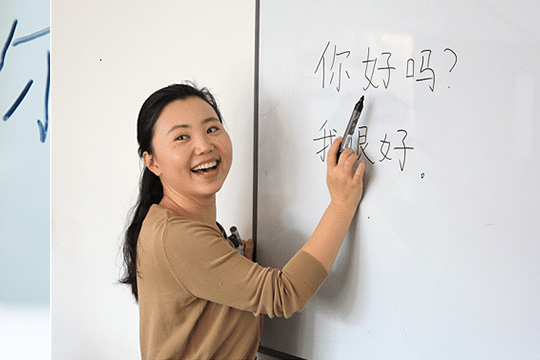 你好吗?
我很好.